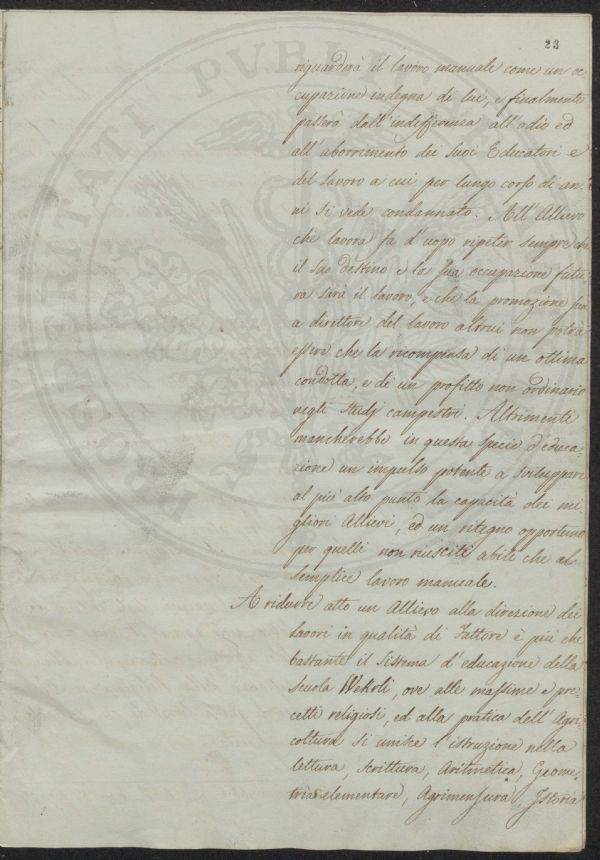 23
riguarderà il lavoro manuale come un oc
cupazione indegna di lui, e finalmente
passerà dall'indifferenza all'odio ed
all'aborrimento dei suoi Educatori e
del lavoro a cui per lungo corso di an-
ni si vede condannato. All'Allievo
che lavora fa d'uopo ripeter sempre che
il suo destino e la sua occupazione futu
ra sarà il lavoro, e che la promozione sua
a direttore del lavoro altrui non potrà
essere che la ricompensa di un ottima
condotta, e di un profitto non ordinario
negli studj campestri. Altrimenti
mancherebbe in questa specie d'educa-
zione un impulso potente a sviluppare
al più alto punto la capacità dei mi
gliori Allievi, ed un ritegno opportuno
per quelli non riusciti abili che al
semplice lavoro manuale.
A ridurre atto un Allievo alla direzione dei
lavori in qualità di Fattore è più che
bastante il sistema d'educazione della
scuola Wehrli, ove alle massime e pre-
cetti religiosi, ed alla pratica dell'Agri-
coltura si unisce l'istruzione nella
lettura, scrittura, Aritmetica, Geome-
tria elementare, Agrimensura, Istoria
PROSPERITATI PUBLI